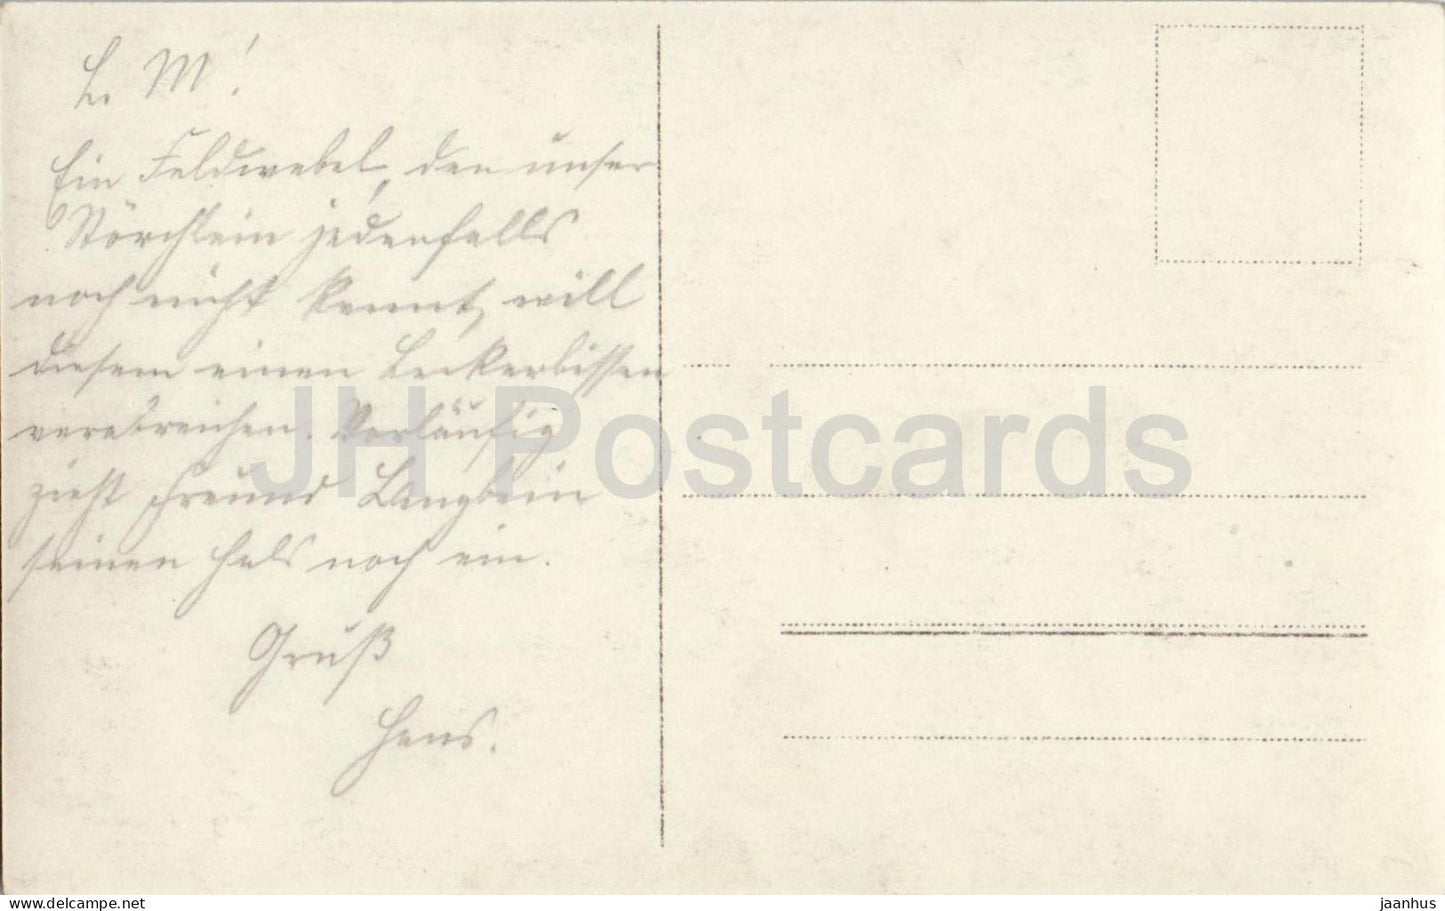 L. M!
Ein Feldwebel, den unser
Störchlein jedenfalls
noch nicht kennt, will
diesem einen Leckerbissen
verabreichen. Vorläufig
zieht Freund Langbein
seinen Hals noch ein.
Gruß
Hans.
JH Postcards
www.delcampe.net
jaanhus